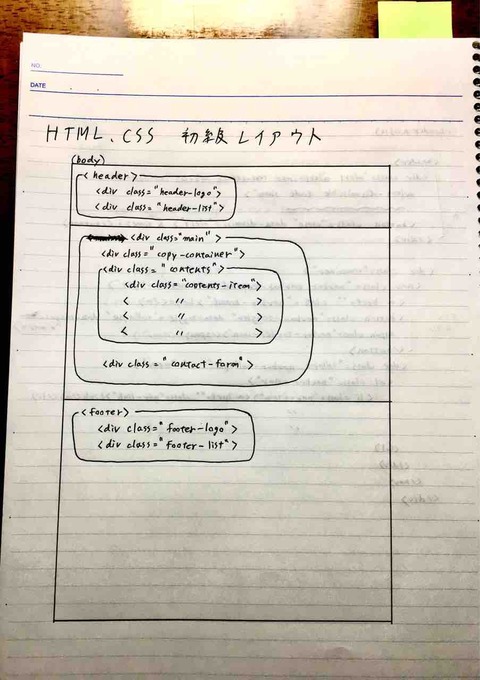 NO.
DATE
HTML.CSS 初級レイアウト
<body>
<header>
<div class="header-logo">
<div class="header-list">
<div class="main">
<div class="copy-container">
<div class="contents">
<div class="contents-item">
< 〃 >
< 〃 >
< 〃 >
<div class="contact-form">
<footer>
<div class="footer-logo">
<div class="footer-list">